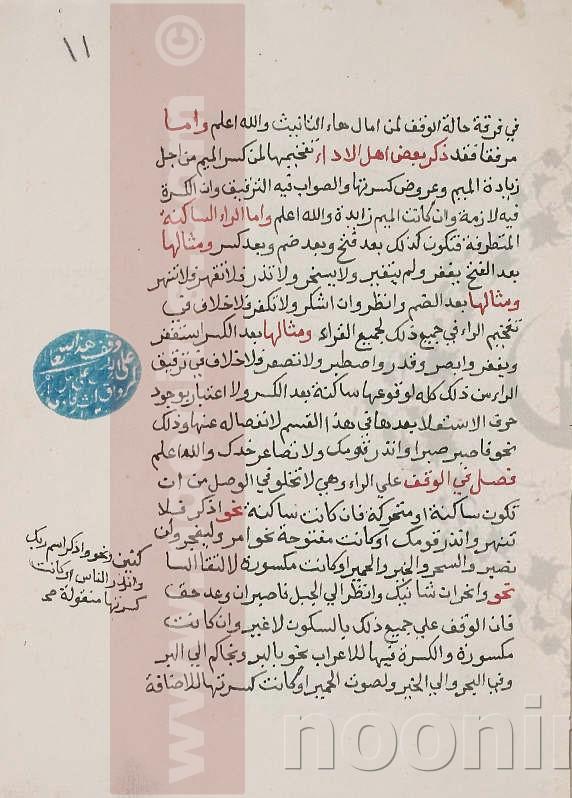 ١١
في فرقة حالة الوقف لمن امال هاء التانيث والله اعلم واما
مرفقا فقد ذكر بعض اهل الاداء تفخيمها لمن كسر الميم من اجل
زيادة الميم وعروض كسرتها والصواب فيه الترقيق وان الكسرة
فيه لازمة وان كانت الميم زايدة والله اعلم واما الراء الساكنة
المتطرفة فتكون كذلك بعد فتح وبعد ضم وبعد كسر ومثالها
بعد الفتح يغفر ولم يتغير ولا يسخر ولا تذر فلا تقهر ولا تنهر
ومثالها بعد الضم وانظر وان اشكر ولا تكفر فلا خلاف في
تفخيم الراء في جميع ذلك لجميع القراء ومثالها بعد الكسر استغفر
ويغفر وابصر وقدر واصطبر ولا تصعر فلا خلاف في ترقيق
الراء من ذلك كله لوقوعها ساكنة بعد الكسر ولا اعتبار بوجود
حرف الاستعلا بعدها في هذا القسم لانفصاله عنها وذلك
نحو فاصبر صبرا وانذر قومك ولا تصاعر خدك والله اعلم
فصل في الوقف علي الراء وهي لا تخلو في الوصل من ان
تكون ساكنة او متحركة فان كانت ساكنة نحو اذكر فلا
تنهر وانذر قومك او كانت مفتوحة نحو امر وليفجر ولن
نصبر والسحر والخير والحمير او كانت مكسورة لالتقا السا
كنين نحو واذكر اسم ربك
وانذر الناس او كانت
كسرتها منقولة صح
نحو وانحر ان شانيك وانظر الي الجبل ناصبر ان وعد حق
فان الوقف علي جميع ذلك بالسكون لا غير وان كانت
مكسورة والكسرة فيها للاعراب نحو بالبر ونجاكم الي البر
وفي البحر والي الخير ولصوت الحمير او كانت كسرتها للاضافة
وقف هذا
علي
noonin